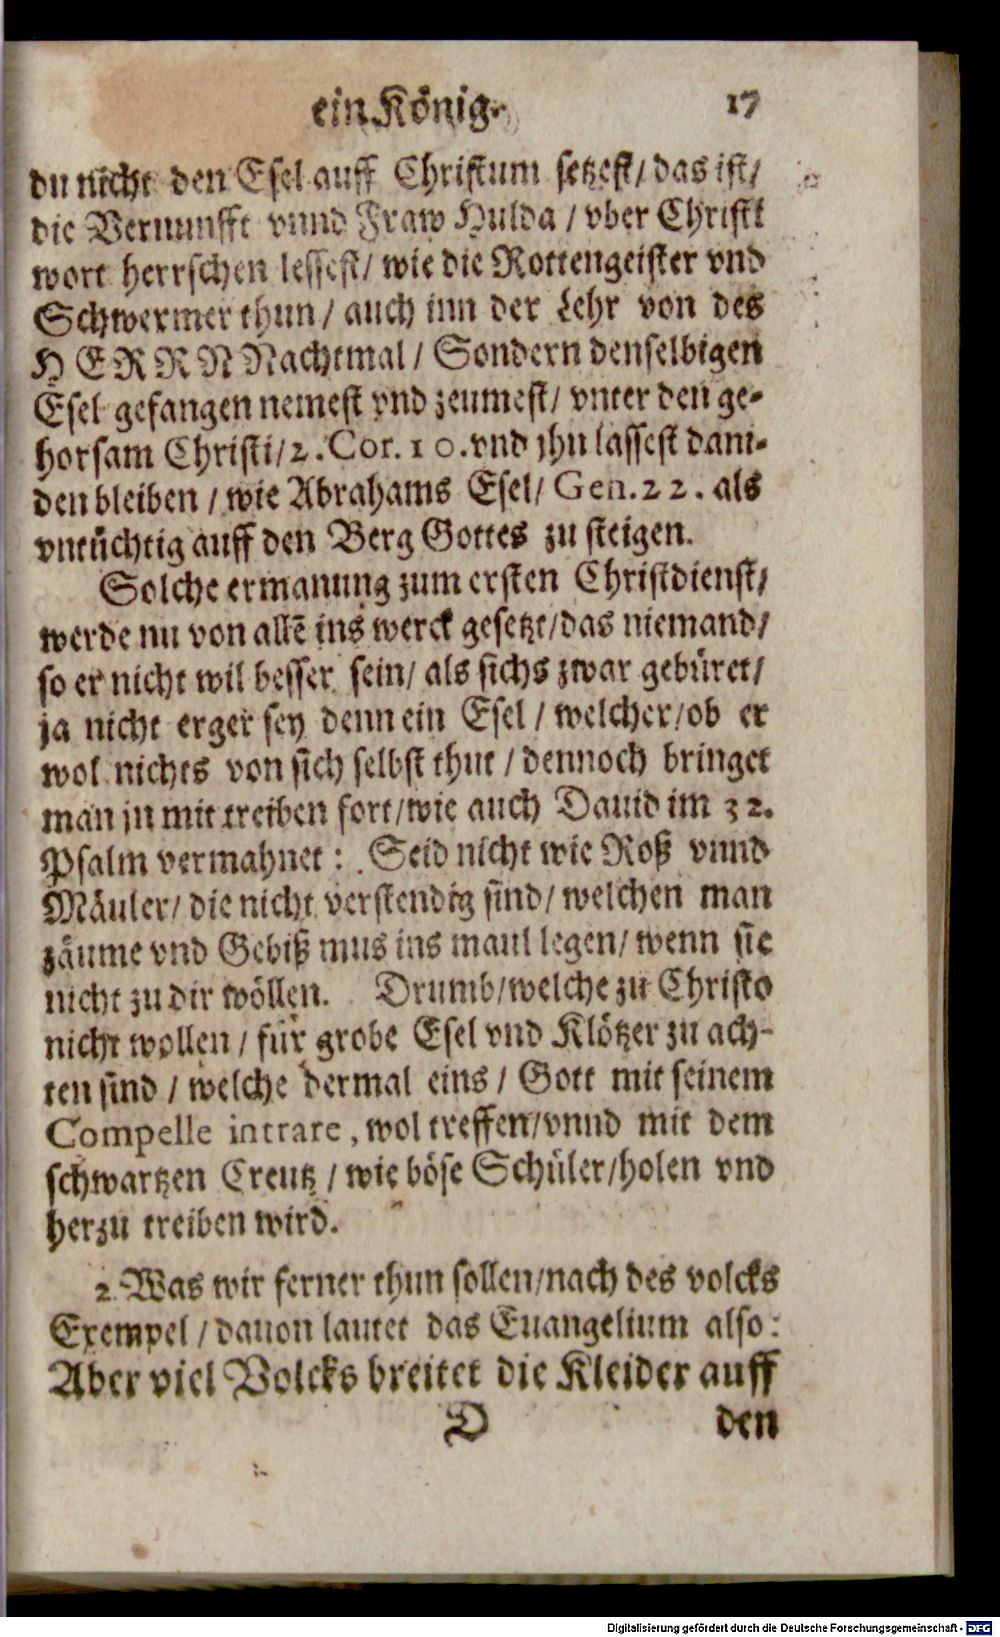 ein König. 17
du nicht den Esel auff Christum setzest/ das ist/
die Vernunfft vnnd Fraw Hulda / vber Christi
wort herrschen lessest/ wie die Rottengeister vnd
Schwermer thun / auch inn der Lehr von des
HERRN Nachtmal / Sondern denselbigen
Esel gefangen nemest vnd zeumest/ vnter den ge-
horsam Christi/2. Cor. 10. vnd jhn lassest dani-
den bleiben / wie Abrahams Esel/ Gen. 22. als
vntüchtig auff den Berg Gottes zu steigen.
Solche ermanung zum ersten Christdienst/
werde nu von allē ins werck gesetzt/das niemand/
so er nicht wil besser sein/ als sichs zwar gebüret/
ja nicht erger sey denn ein Esel / welcher/ob er
wol nichts von sich selbst thut / dennoch bringet
man jn mit treiben fort/wie auch Dauid im 32.
Psalm vermahnet: Seid nicht wie Roß vnnd
Mäuler/ die nicht verstendig sind/ welchen man
zäume vnd Gebiß mus ins maul legen/ wenn sie
nicht zu dir wöllen. Drumb/welche zu Christo
nicht wollen / für grobe Esel vnd Klötzer zu ach-
ten sind / welche dermal eins / Gott mit seinem
Compelle intrare, wol treffen/vnnd mit dem
schwartzen Creutz / wie böse Schüler/holen vnd
herzu treiben wird.
2. Was wir ferner thun sollen/nach des volcks
Exempel / dauon lautet das Euangelium also:
Aber viel Volcks breitet die Kleider auff
D den
Digitalisierung gefördert durch die Deutsche Forschungsgemeinschaft - DFG